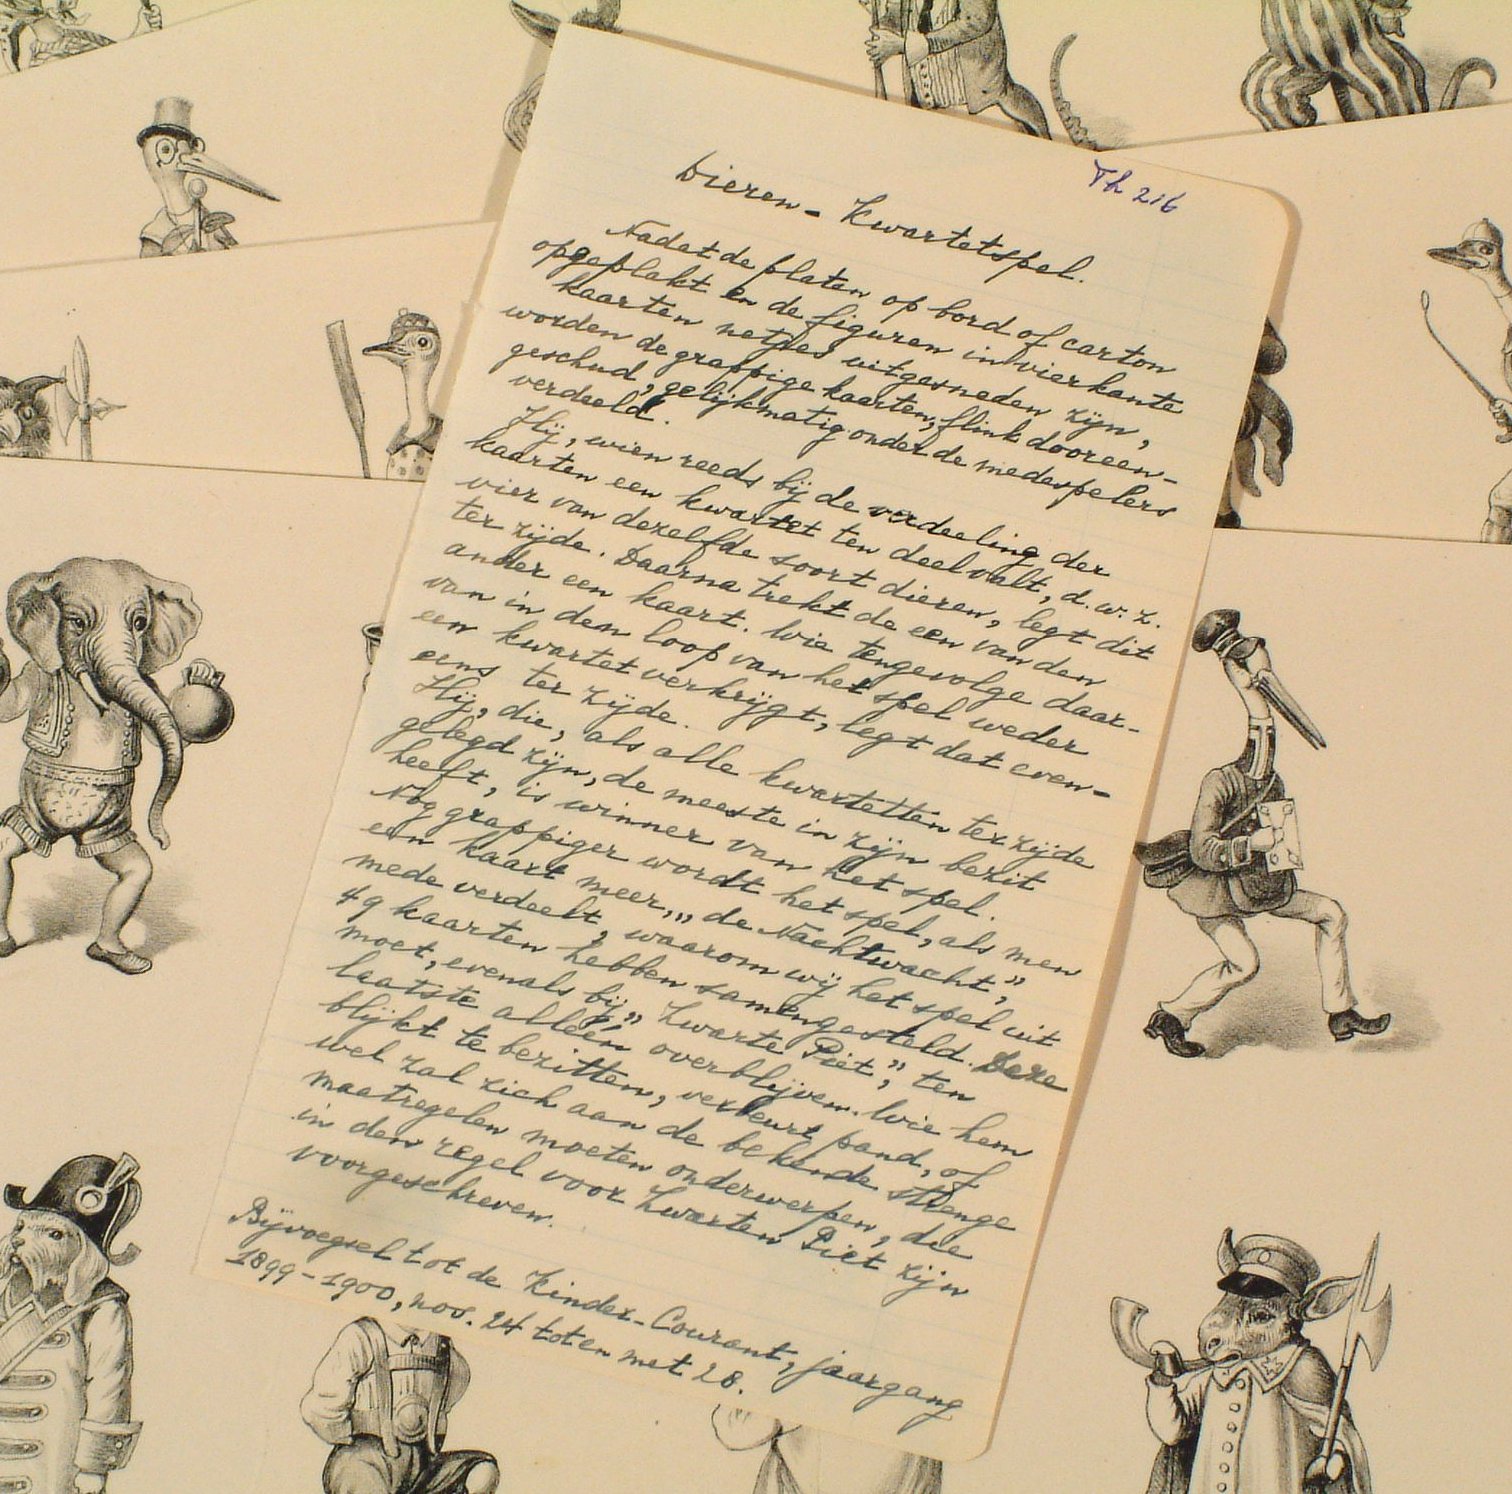 Th 216
Dieren-Kwartetspel.
Nadat de platen op bord of carton
opgeplakt en de figuren in vierkante
kaarten netjes uitgesneden zijn,
worden de grappige kaarten, flink dooreen-
geschud, gelijkmatig onder de medespelers
verdeeld.
Hij, wien reeds bij de verdeeling der
kaarten een kwartet ten deel valt, d.w.z.
vier van dezelfde soort dieren, legt dit
ter zijde. Daarna trekt de een van den
ander een kaart. Wie tengevolge daar-
van in den loop van het spel weder
een kwartet verkrijgt, legt dat even-
eens ter zijde.
Hij, die, als alle kwartetten ter zijde
gelegd zijn, de meeste in zijn bezit
heeft, is winner van het spel.
Nog grappiger wordt het spel, als men
een kaart meer, „de Nachtwacht”,
mede verdeelt, waarom wij het spel uit
49 kaarten hebben samengesteld. Deze
moet, evenals bij „Zwarte Piet”, ten
laatste alléén overblijven. Wie hem
blijkt te bezitten, verbeurt pand, of
wel zal zich aan de bekende strenge
maatregelen moeten onderwerpen, die
in den regel voor Zwarten Piet zijn
voorgeschreven.
Bijvoegsel tot de Kinder-Courant, jaargang
1899-1900, nos. 24 tot en met 28.